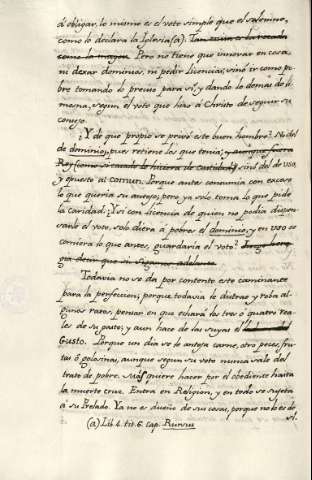 d obligar, lo mismo es el voto simple que el solemne,
como lo declara la Iglesia (a).
Pero no tiene que innovar en cosa,
ni dexar dominios, ni pedir licencias, sino ir como po-
bre tomando lo preciso para sí, y dando lo demas de li-
mosna, segun el voto que hizo á Christo de seguir su
consejo.
¿Y de que propio se privó este buen hombre? No del
de dominio, pues retiene los que tenia,
sino del de uso,
y puesto al comun. Porque antes consumia con exceso
lo que queria su antojo; pero ya solo toma lo que pide
la caridad. ¿Y si con licencia de quien no podia dispen-
sarle el voto, solo diera á pobres el dominio, y en uso se
comiera lo que antes, guardaria el voto?
Todavia no se da por contento este caminante
para la perfeccion; porque todavia le distrae y roba al-
gunos ratos, pensar en que echará los tres ó quatro rea-
les de su gasto; y aun hace de las suyas el
Gusto. Porque un dia se le antoja carne, otro peces, fru-
tas ó golosinas, aunque segun su voto nunca sale del
trato de pobre. Mas quiere hacer por el obediente hasta
la muerte cruz. Entra en Religion, y en todo se sujeta
á su Prelado. Ya no es dueño de sus cosas, porque no lo es de
sí.
(a) Lib. 4. tit. 6. cap. Rursus